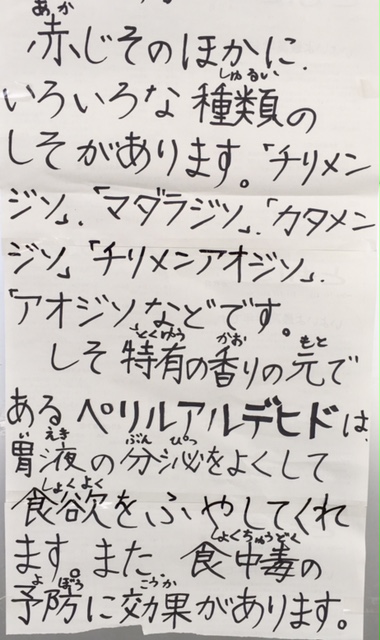 赤じそのほかに、
いろいろな種類の
しそがあります。「チリメン
ジソ」、「マダラジソ」、「カタメン
ジソ」「チリメンアオジソ」、
「アオジソなどです。
しそ特有の香りの元で
あるペリルアルデヒドは、
胃液の分泌をよくして
食欲をふやしてくれ
ます。また 食中毒の
予防に効果があります。